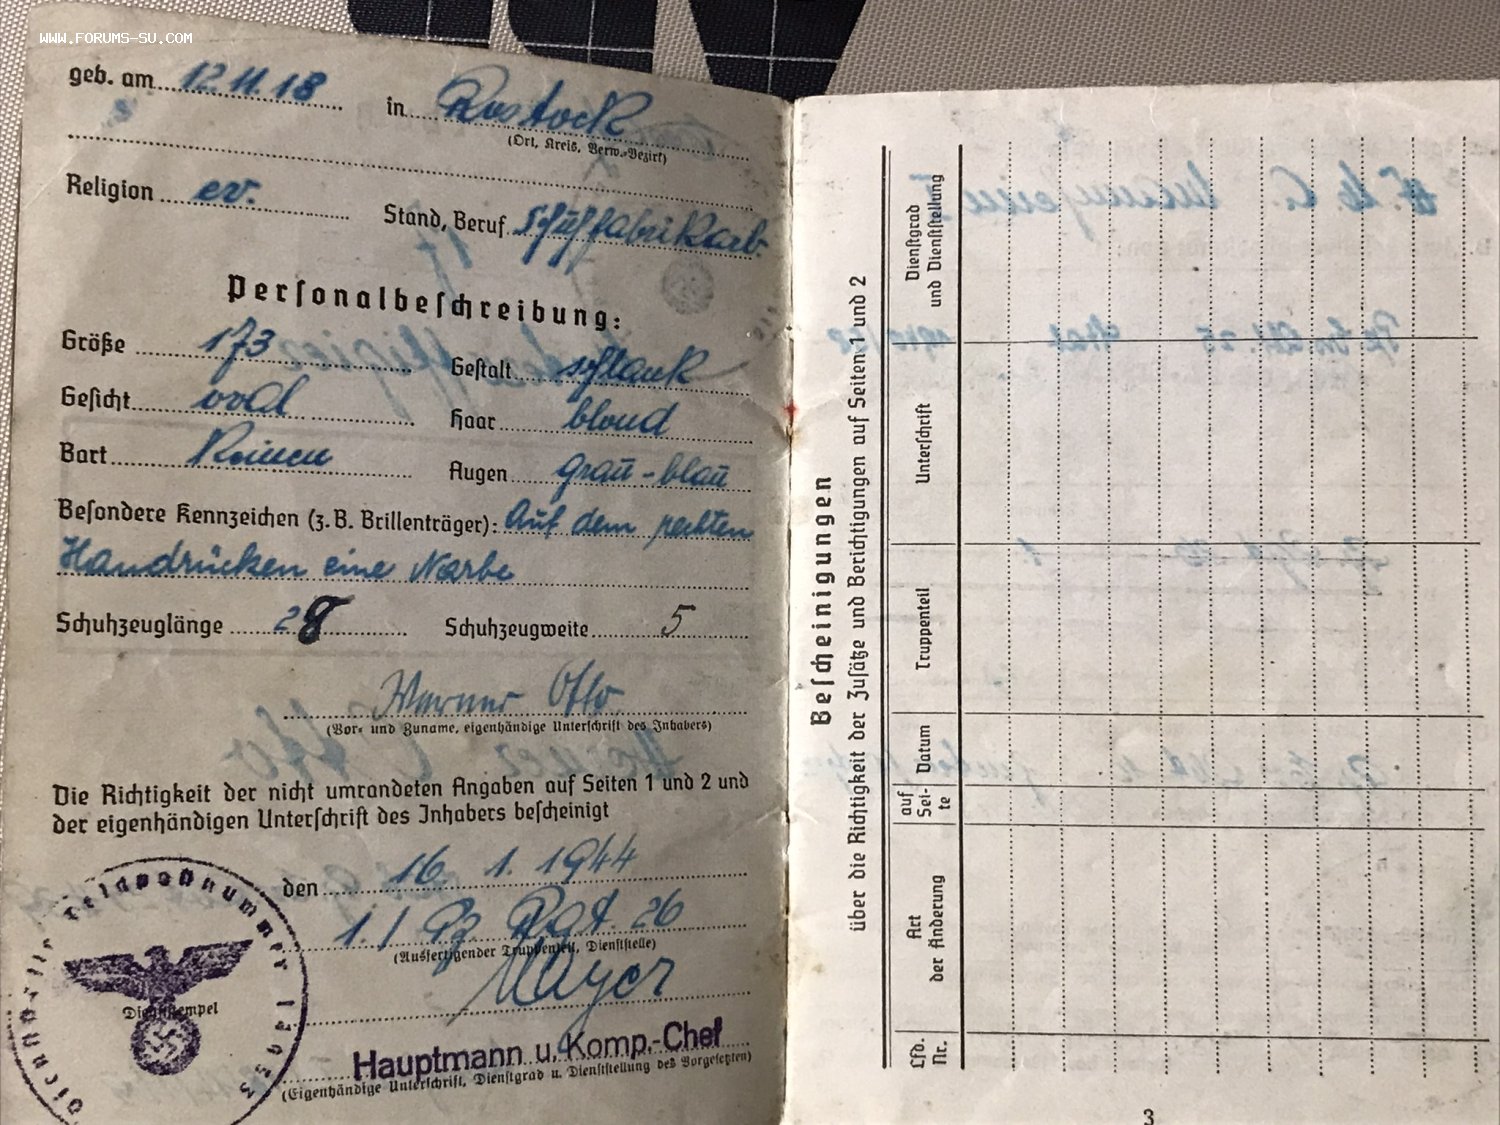 WWW.FORUMS-SU.COM
geb. am 12.11.18 in Rostock
(Ort, Kreis, Verw.-Bezirk)
Religion ev. Stand, Beruf Schuhfabrikarb.
Personalbeschreibung:
Größe 173 Gestalt schlank
Gesicht oval Haar blond
Bart Keinen Augen grau-blau
Besondere Kennzeichen (z.B. Brillenträger): Auf dem rechten
Handrücken eine Narbe
Schuhzeuglänge 28 Schuhzeugweite 5
Werner Otto
(Vor- und Zuname, eigenhändige Unterschrift des Inhabers)
Die Richtigkeit der nicht umrandeten Angaben auf Seiten 1 und 2 und
der eigenhändigen Unterschrift des Inhabers bescheinigt
den 16. 1. 1944
1./ Pz. Rgt. 26
(Ausfertigender Truppenteil, Dienststelle)
Mayer
Hauptmann u. Komp.-Chef
(Eigenhändige Unterschrift, Dienstgrad u. Dienststellung des Vorgesetzten)
Dienststempel
Dienststelle Feldpostnummer
Bescheinigungen
über die Richtigkeit der Zusätze und Berichtigungen auf Seiten 1 und 2
Lfd. Nr.
Art der Änderung
auf Sei-te
Datum
Truppenteil
Unterschrift
Dienstgrad und Dienststellung
3